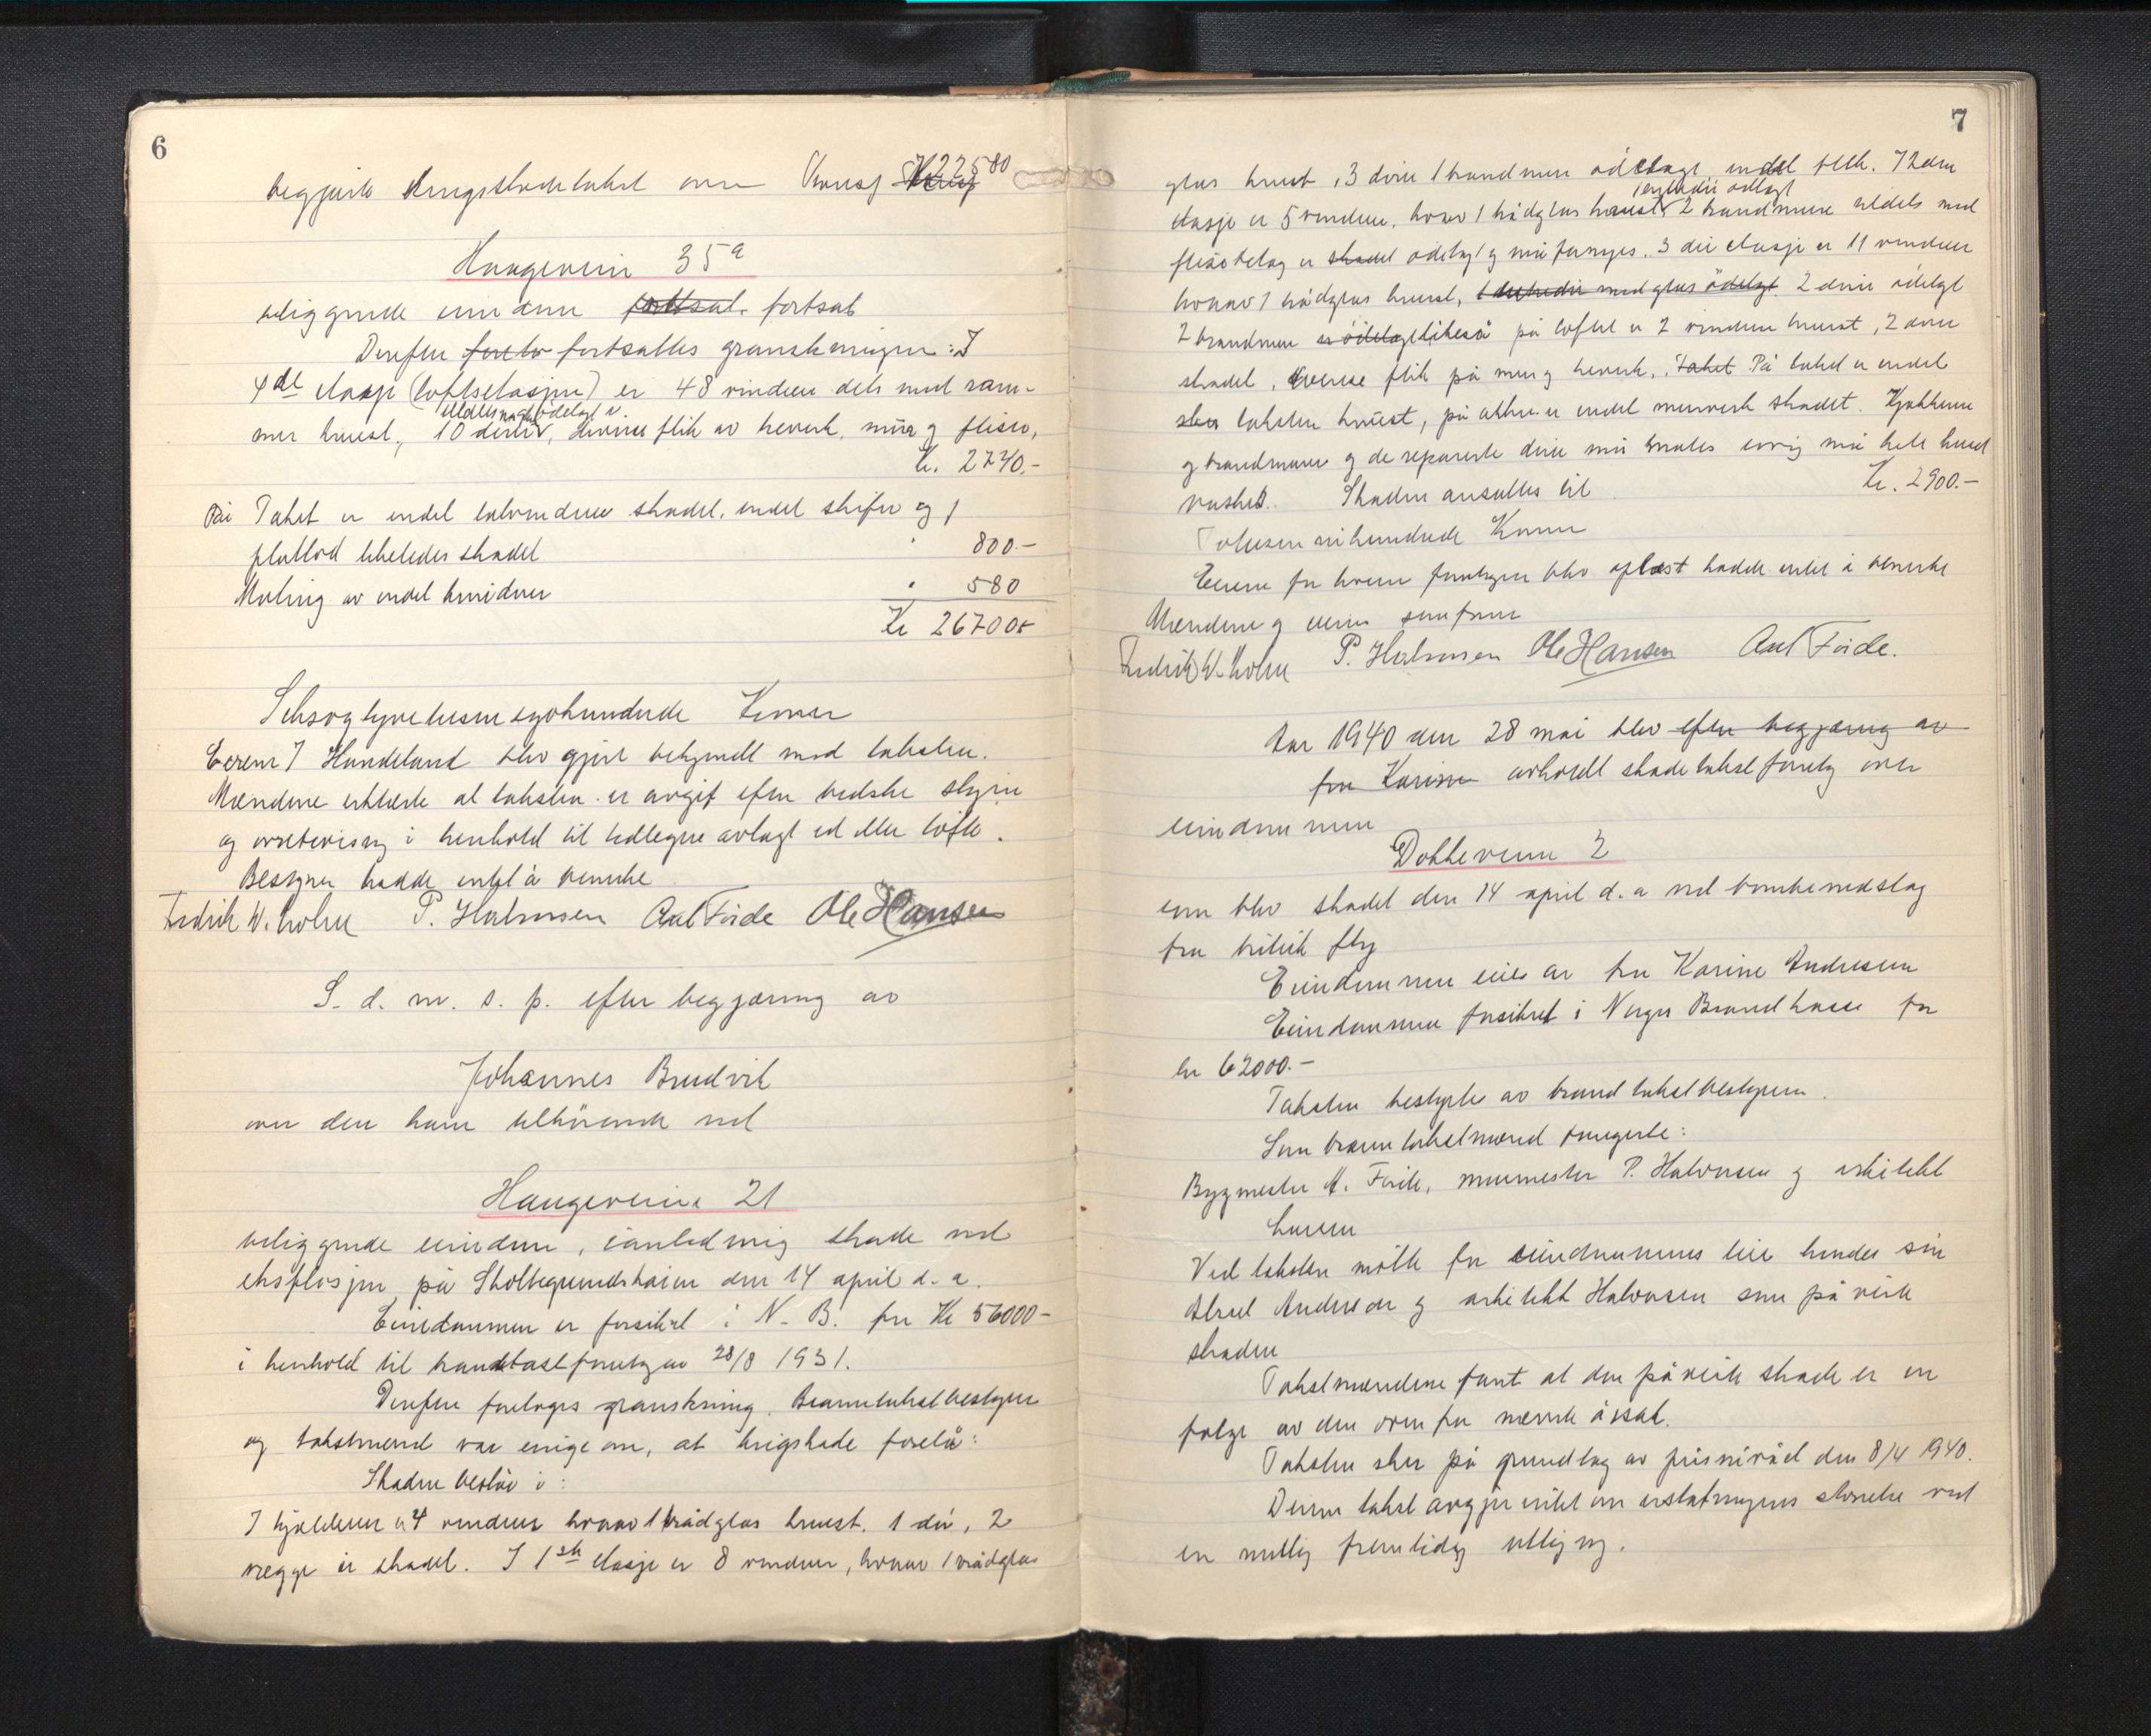 6
begjært krigsskadetakst over Transp 22580
Haugeveien 35a
beliggende eiendom fortsat. fortsat
Derefter forelov fortsattes granskningen: I
4de etasje (loftsetasjen) er 48 vinduer dels med ram-
mer knust, 10 dører, diverse flik av treverk, mur og fliser,
tildels noget ødelagt
Kr. 2740.-
På Taket er endel takvinduer skadet, endel skifer og
plattod likeledes skadet " 800.-
Maling av endel kvinduer " 580
Kr 26700.-
Seksogtyvetusen syvhundrede Kroner
Eieren I Handeland blev gjort bekjendt med taksten.
Mændene erklærte at taksten er avgit efter bedste skjøn
og overbevisning i henhold til tidligere avlagt ed eller løfte.
Bestyrer hadde intet å bemerke
Fredrik W. Holm P. Halvorsen Axel Förde Ole Hansen
S. d. m. s. p. efter begjæring av
Johannes Brudvik
over den ham tilhørende ved
Haugeveien 21
beliggende eiendom, i anledning skade ved
eksplosjon på Skoltegrundskaien den 14 april d. a.
Eiendommen er forsikret i N. B. for Kr 56000-
i henhold til brandtakstforretn av 28/8 1931.
Derefter foretoges granskning. Branntakstbestyrer
og takstmend var enige om, at krigskade forelå:
Skaden består i:
I kjelderen er 4 vinduer hvorav 1 trådglas knust. 1 dör, 2
vegger er skadet. I 1ste etasje er 8 vinduer, hvorav 1 trådglas
7
glas knust, 3 dörer 1 brandmur ödelagt, endel blik. I 2den
1 enkeldör ödelagt
etasje er 5 vinduer, hvorav 1 trådglas knust, 2 brandmure tildels med
flisebelag er skadet ödelagt og må fornyes. 3die etasje er 11 vinduer
hvorav 1 trådglas knust, 1 dör med glas ödelagt 2 dörer ödelagt
2 brandmure er ödelagt likeså på loftet er 2 vinduer knust, 2 dörer
skadet, diverse flik på mur og treverk. Taket På taket er endel
taksten knust, på altan er endel murverk skadet. Kjøkkene
og brandmurer og de reparerte dörer må males, övrig må hele huset
vaskes. Skaden ansattes til Kr. 2900.-
Totusen nihundrede Kroner
Eieren for hvem forretningen blev oplæst hadde intet å bemerke
Mændene og eieren
Fredrik W. Holm P. Halvorsen Ole Hansen Axel Förde.
Aar 1940 den 28 mai blev efter begjæring av
fru Karine avholdt skadetakstforretn over
eiendommen
Dokkeveien 2
som blev skadet den 14 april d. a ved bombenedslag
fra britisk fly
Eiendommen eies av fru Karine Andresen
Eiendommen forsikret i Norges Brandkasse for
kr 62000.-
Taksten bestyrtes av brandtakstbestyreren.
Som branntakstmænd fungerte:
Bygmester A. Förde, murmester P. Halvorsen og arkitekt
Larsen
Ved taksten mötte for eiendommens eier hendes sön
Aksel Andresen og arkitekt Halvorsen som påviste
skaden
Takstmændene fant at den påviste skade er en
følge av den ovenfor nævnte årsak.
Taksten sker på grundlag av prisnivået den 8/4 1940.
Denne takst avgjör intet om erstatningens störrelse ved
en mulig fremtidig utligning.